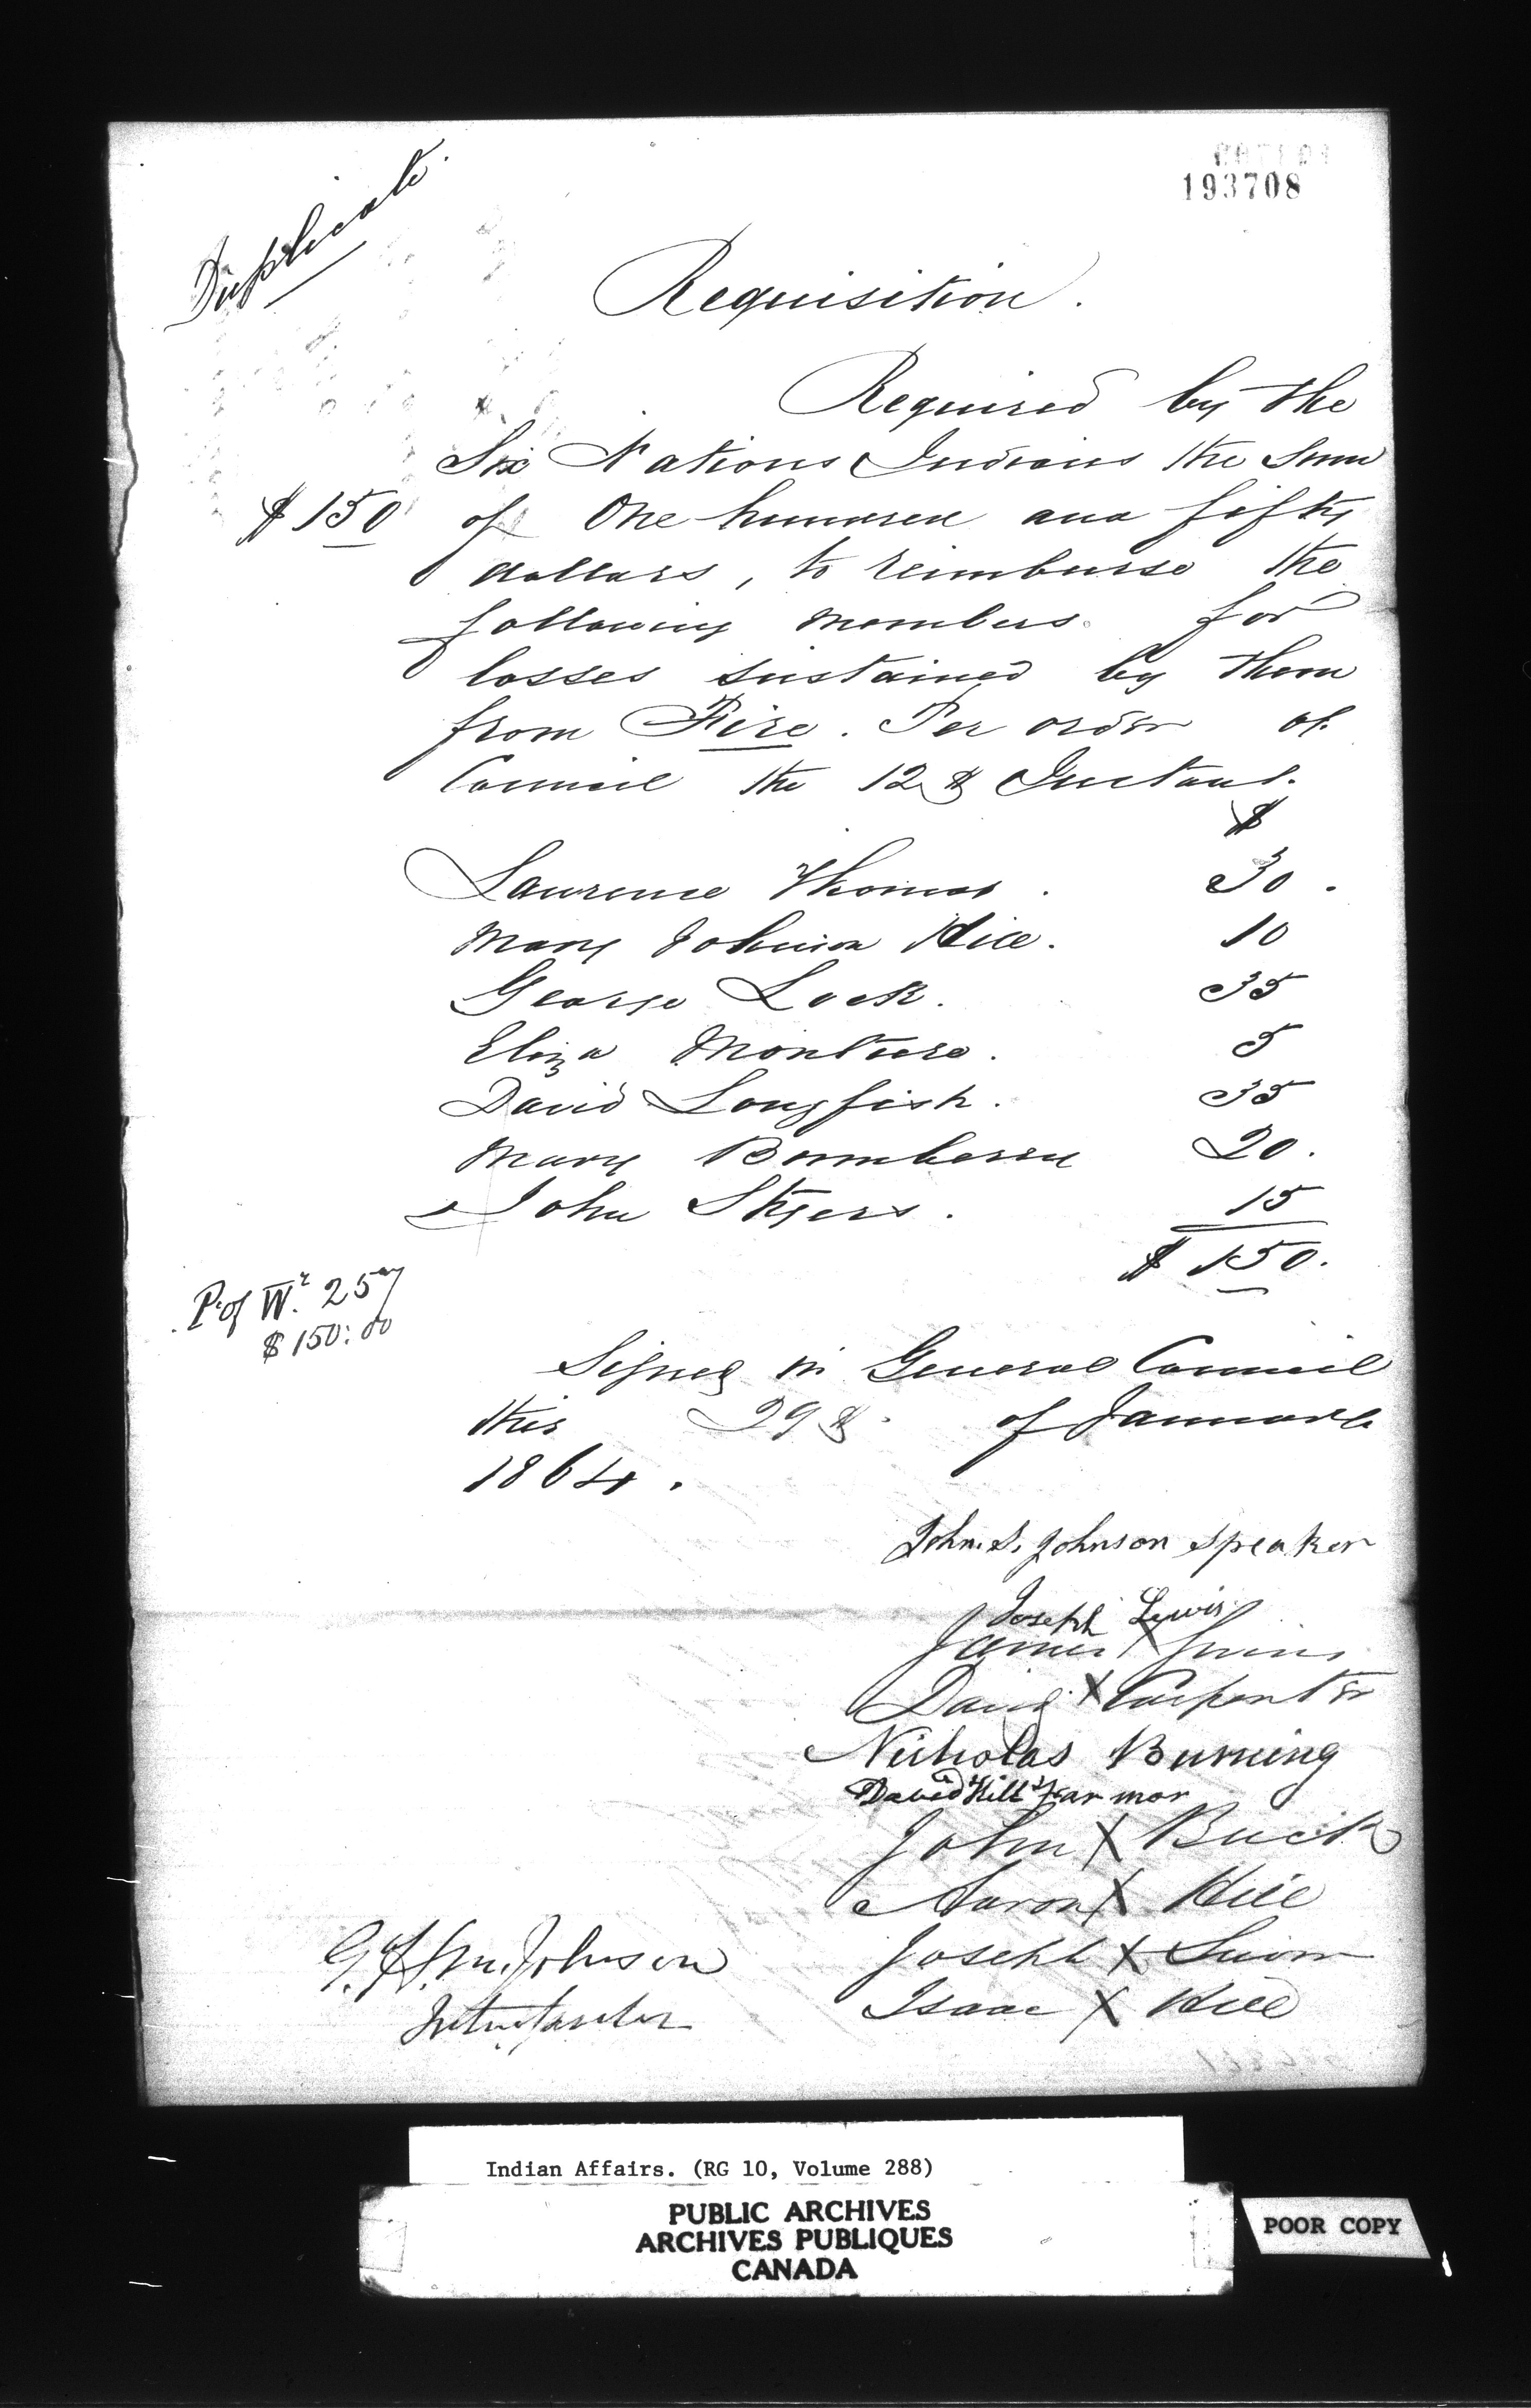 193708
Duplicate.
Requisition.
Required by the
Six Nations Indians the Sum
$150 of One hundred and fifty
dollars, to reimburse the
following members for
losses sustained by them
from Fire. Per order of
Council the 12th Instant.
$
Lawrence Thomas. 30.
Mary Johnson Hill. 10
George Lock. 35
Eliza Monture. 5
David Longfish. 35
Mary Bomberry 20.
John Styers. 15
$150.
P. of W. 25
$150:00
Signed in General Council
this 29th of January
1864.
John. S. Johnson Speaker
Joseph Lewis
James X
David X Carpenter
Nicholas Burning
David Hill
John X Buck
Aaron X Hill
Joseph X
Isaac X Hill
Johnson
Interpreter
Indian Affairs. (RG 10, Volume 288)
PUBLIC ARCHIVES
ARCHIVES PUBLIQUES
CANADA
POOR COPY